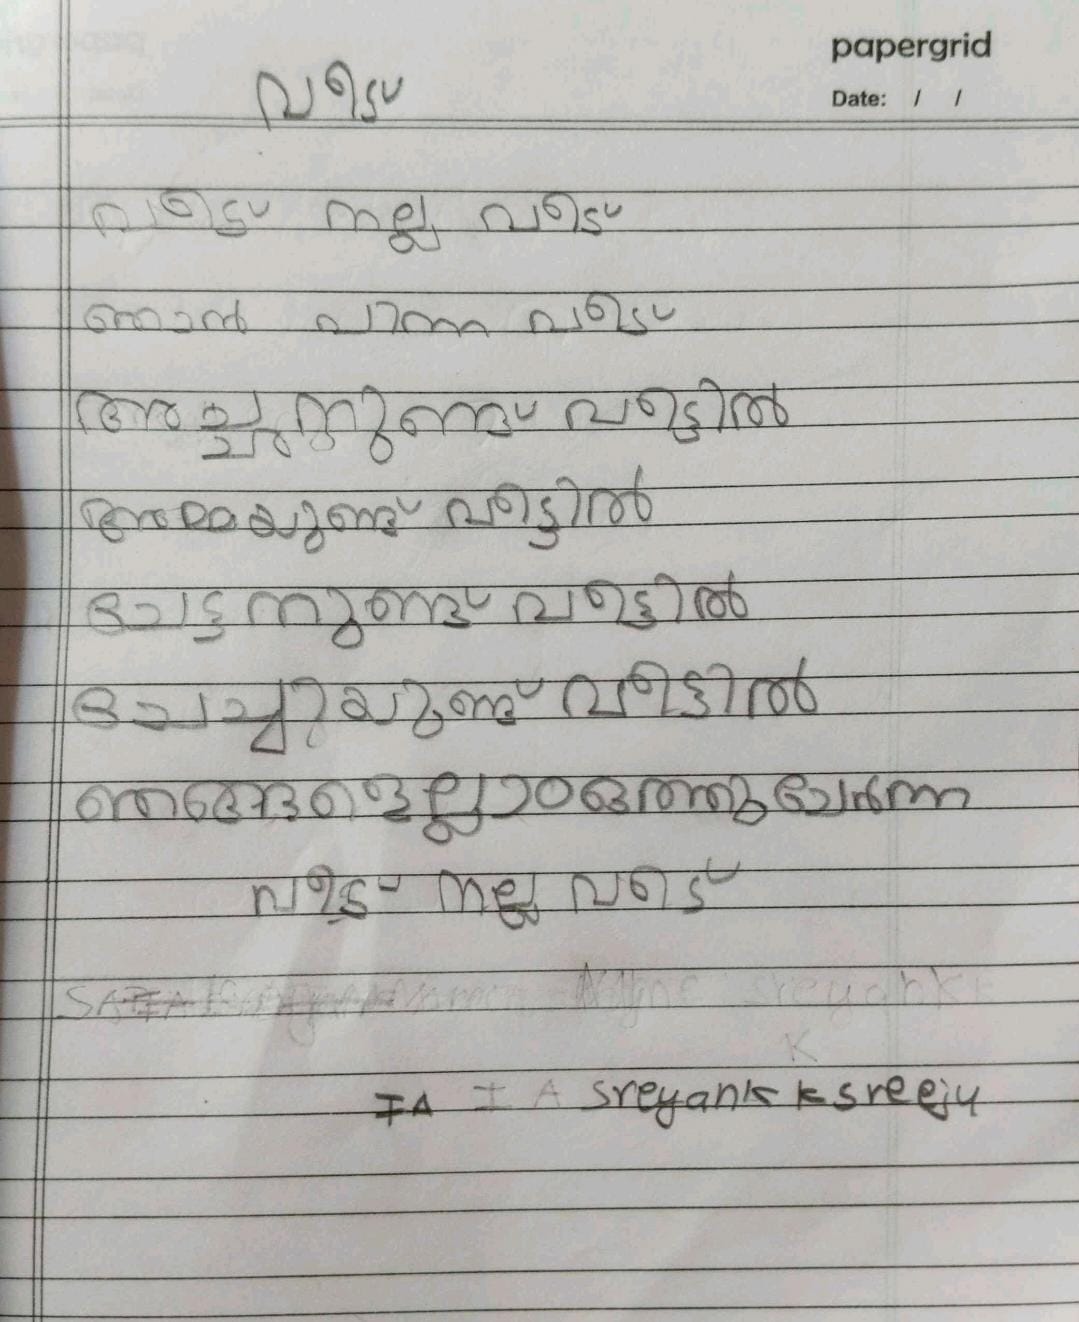 papergrid
Date: / /
വീട്
വീട് നല്ല വീട്
ഞാൻ പിറന്ന വീട്
അച്ഛനുണ്ട് വീട്ടിൽ
അമ്മയുണ്ട് വീട്ടിൽ
ചേട്ടനുണ്ട് വീട്ടിൽ
ചേച്ചിയുണ്ട് വീട്ടിൽ
ഞങ്ങളെല്ലാം ഒത്തുചേർന്ന
വീട് നല്ല വീട്
sreyank
K
IA I A sreyank k sreeju